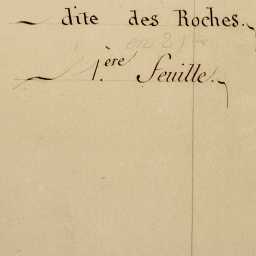 dite des Roches.
1ère feuille.